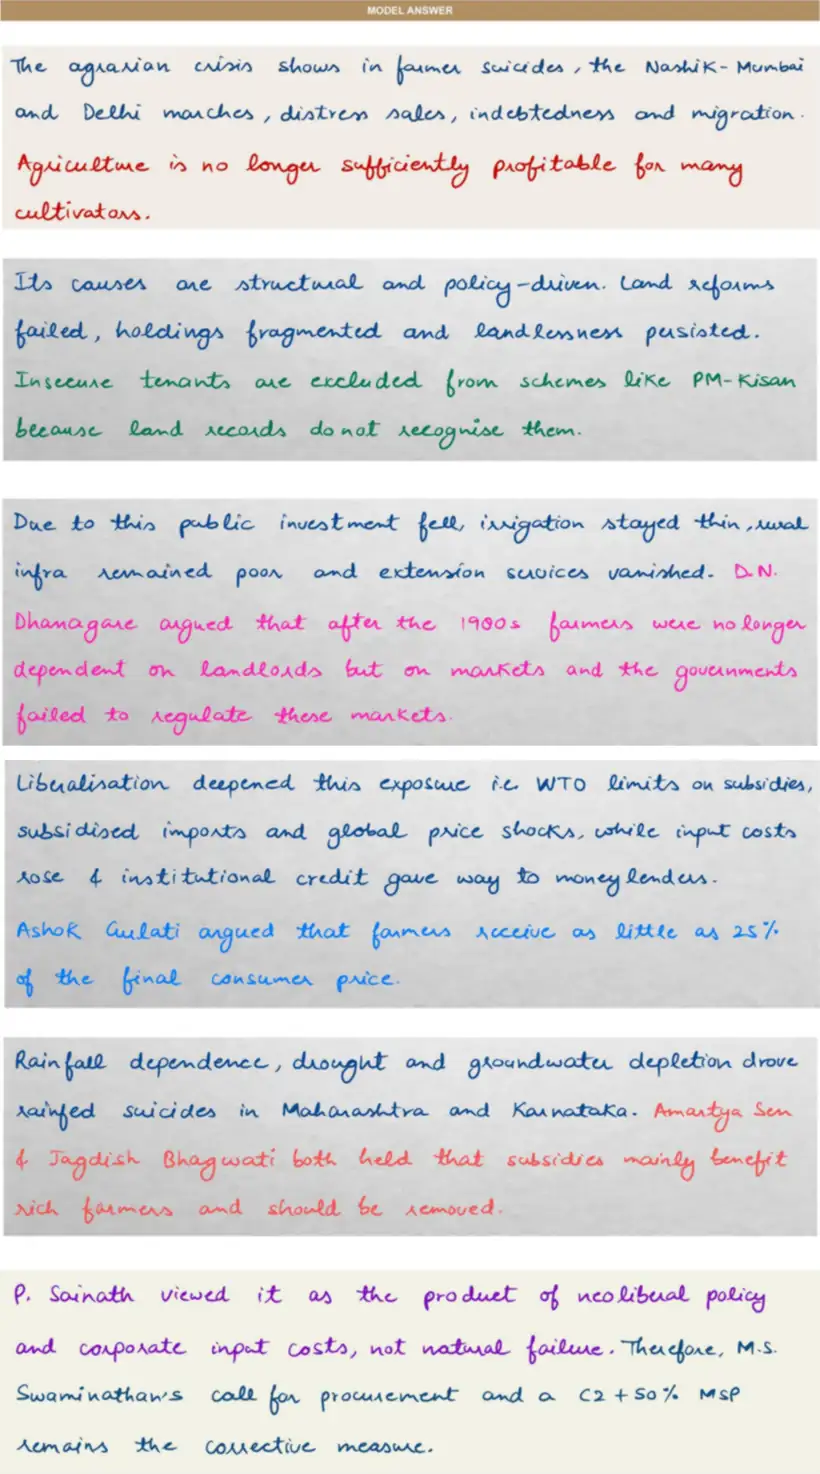 MODEL ANSWER
The agrarian crisis shows in farmer suicides, the Nashik-Mumbai
and Delhi marches, distress sales, indebtedness and migration.
Agriculture is no longer sufficiently profitable for many
cultivators.
Its causes are structural and policy-driven. Land reforms
failed, holdings fragmented and landlessness persisted.
Insecure tenants are excluded from schemes like PM-Kisan
because land records do not recognise them.
Due to this public investment fell, irrigation stayed thin, rural
infra remained poor and extension services vanished. D.N.
Dhanagare argued that after the 1980s farmers were no longer
dependent on landlords but on markets and the governments
failed to regulate these markets.
Liberalisation deepened this exposure i.e. WTO limits on subsidies,
subsidised imports and global price shocks, while input costs
rose & institutional credit gave way to moneylenders.
Ashok Gulati argued that farmers receive as little as 25%
of the final consumer price.
Rainfall dependence, drought and groundwater depletion drove
rainfed suicides in Maharashtra and Karnataka. Amartya Sen
& Jagdish Bhagwati both held that subsidies mainly benefit
rich farmers and should be removed.
P. Sainath viewed it as the product of neoliberal policy
and corporate input costs, not natural failure. Therefore, M.S.
Swaminathan's call for procurement and a C2 + 50% MSP
remains the corrective measure.